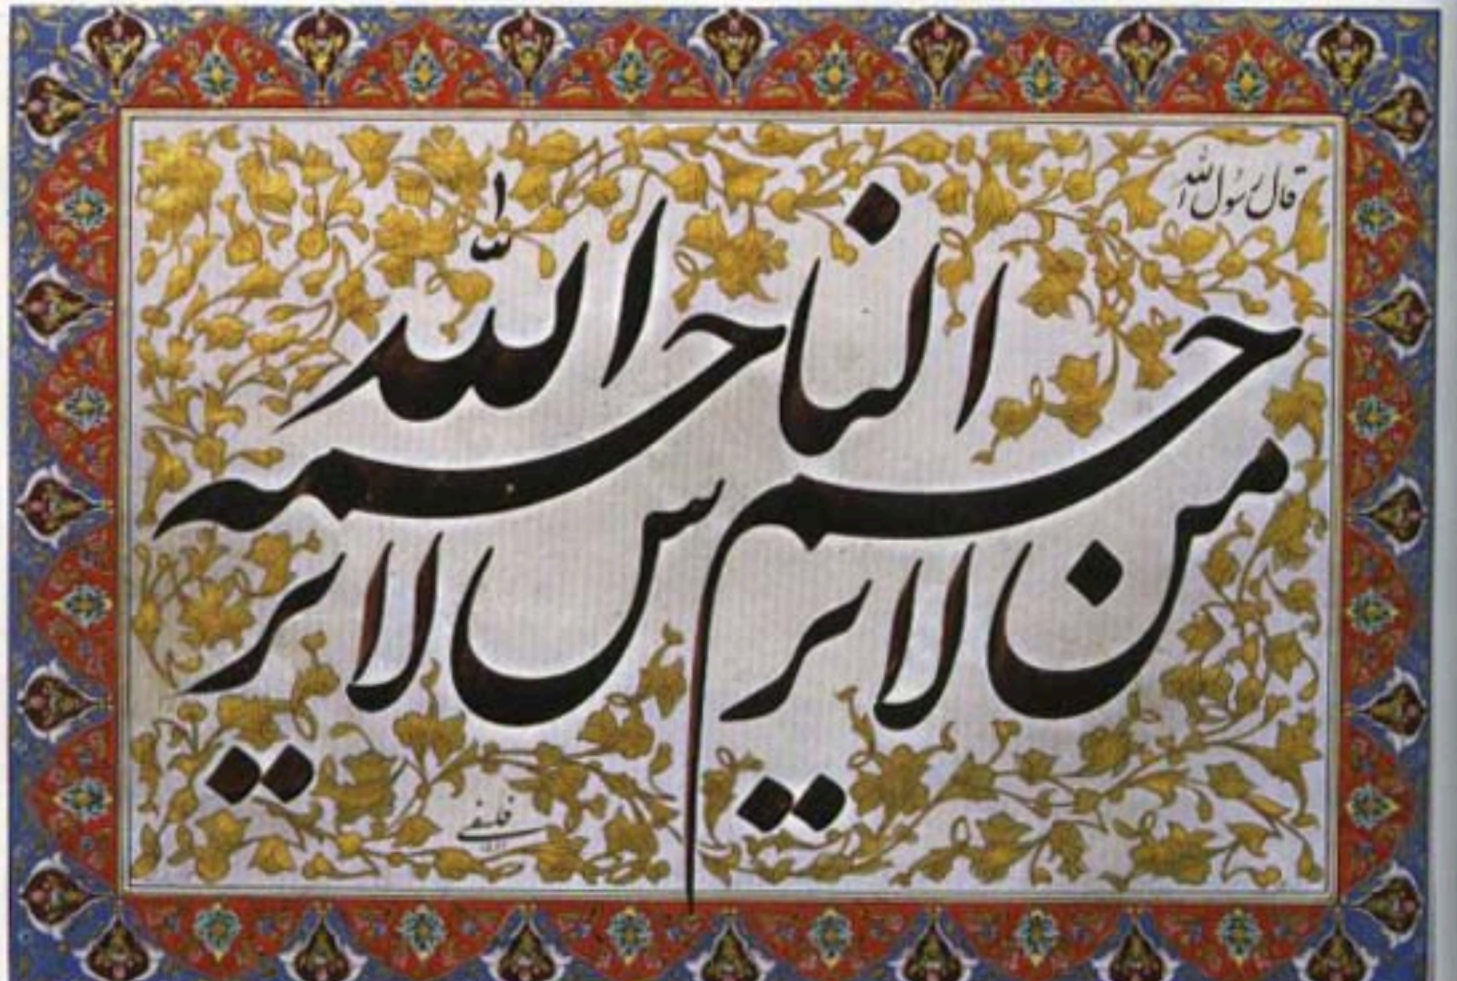 قال رسول الله
من لا يرحم الناس لا يرحمه الله
فلسفی